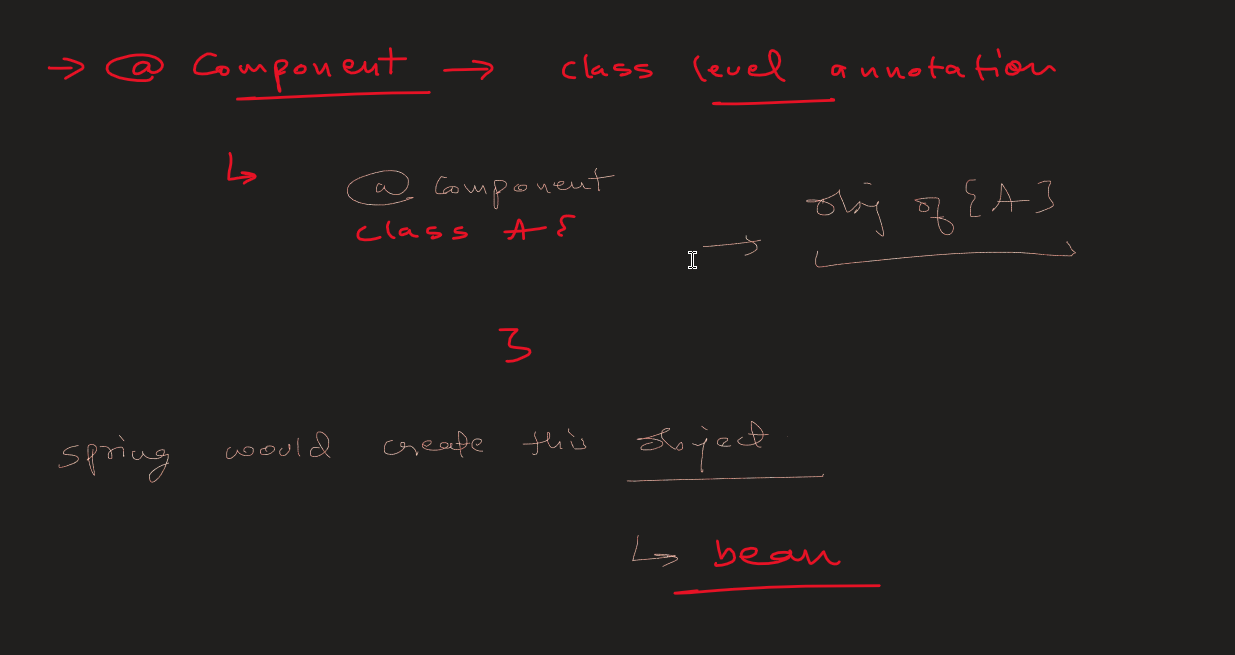 → @ Component → class level annotation
↳ @ Component
class A {
→ obj of {A}
}
spring would create this object
↳ bean